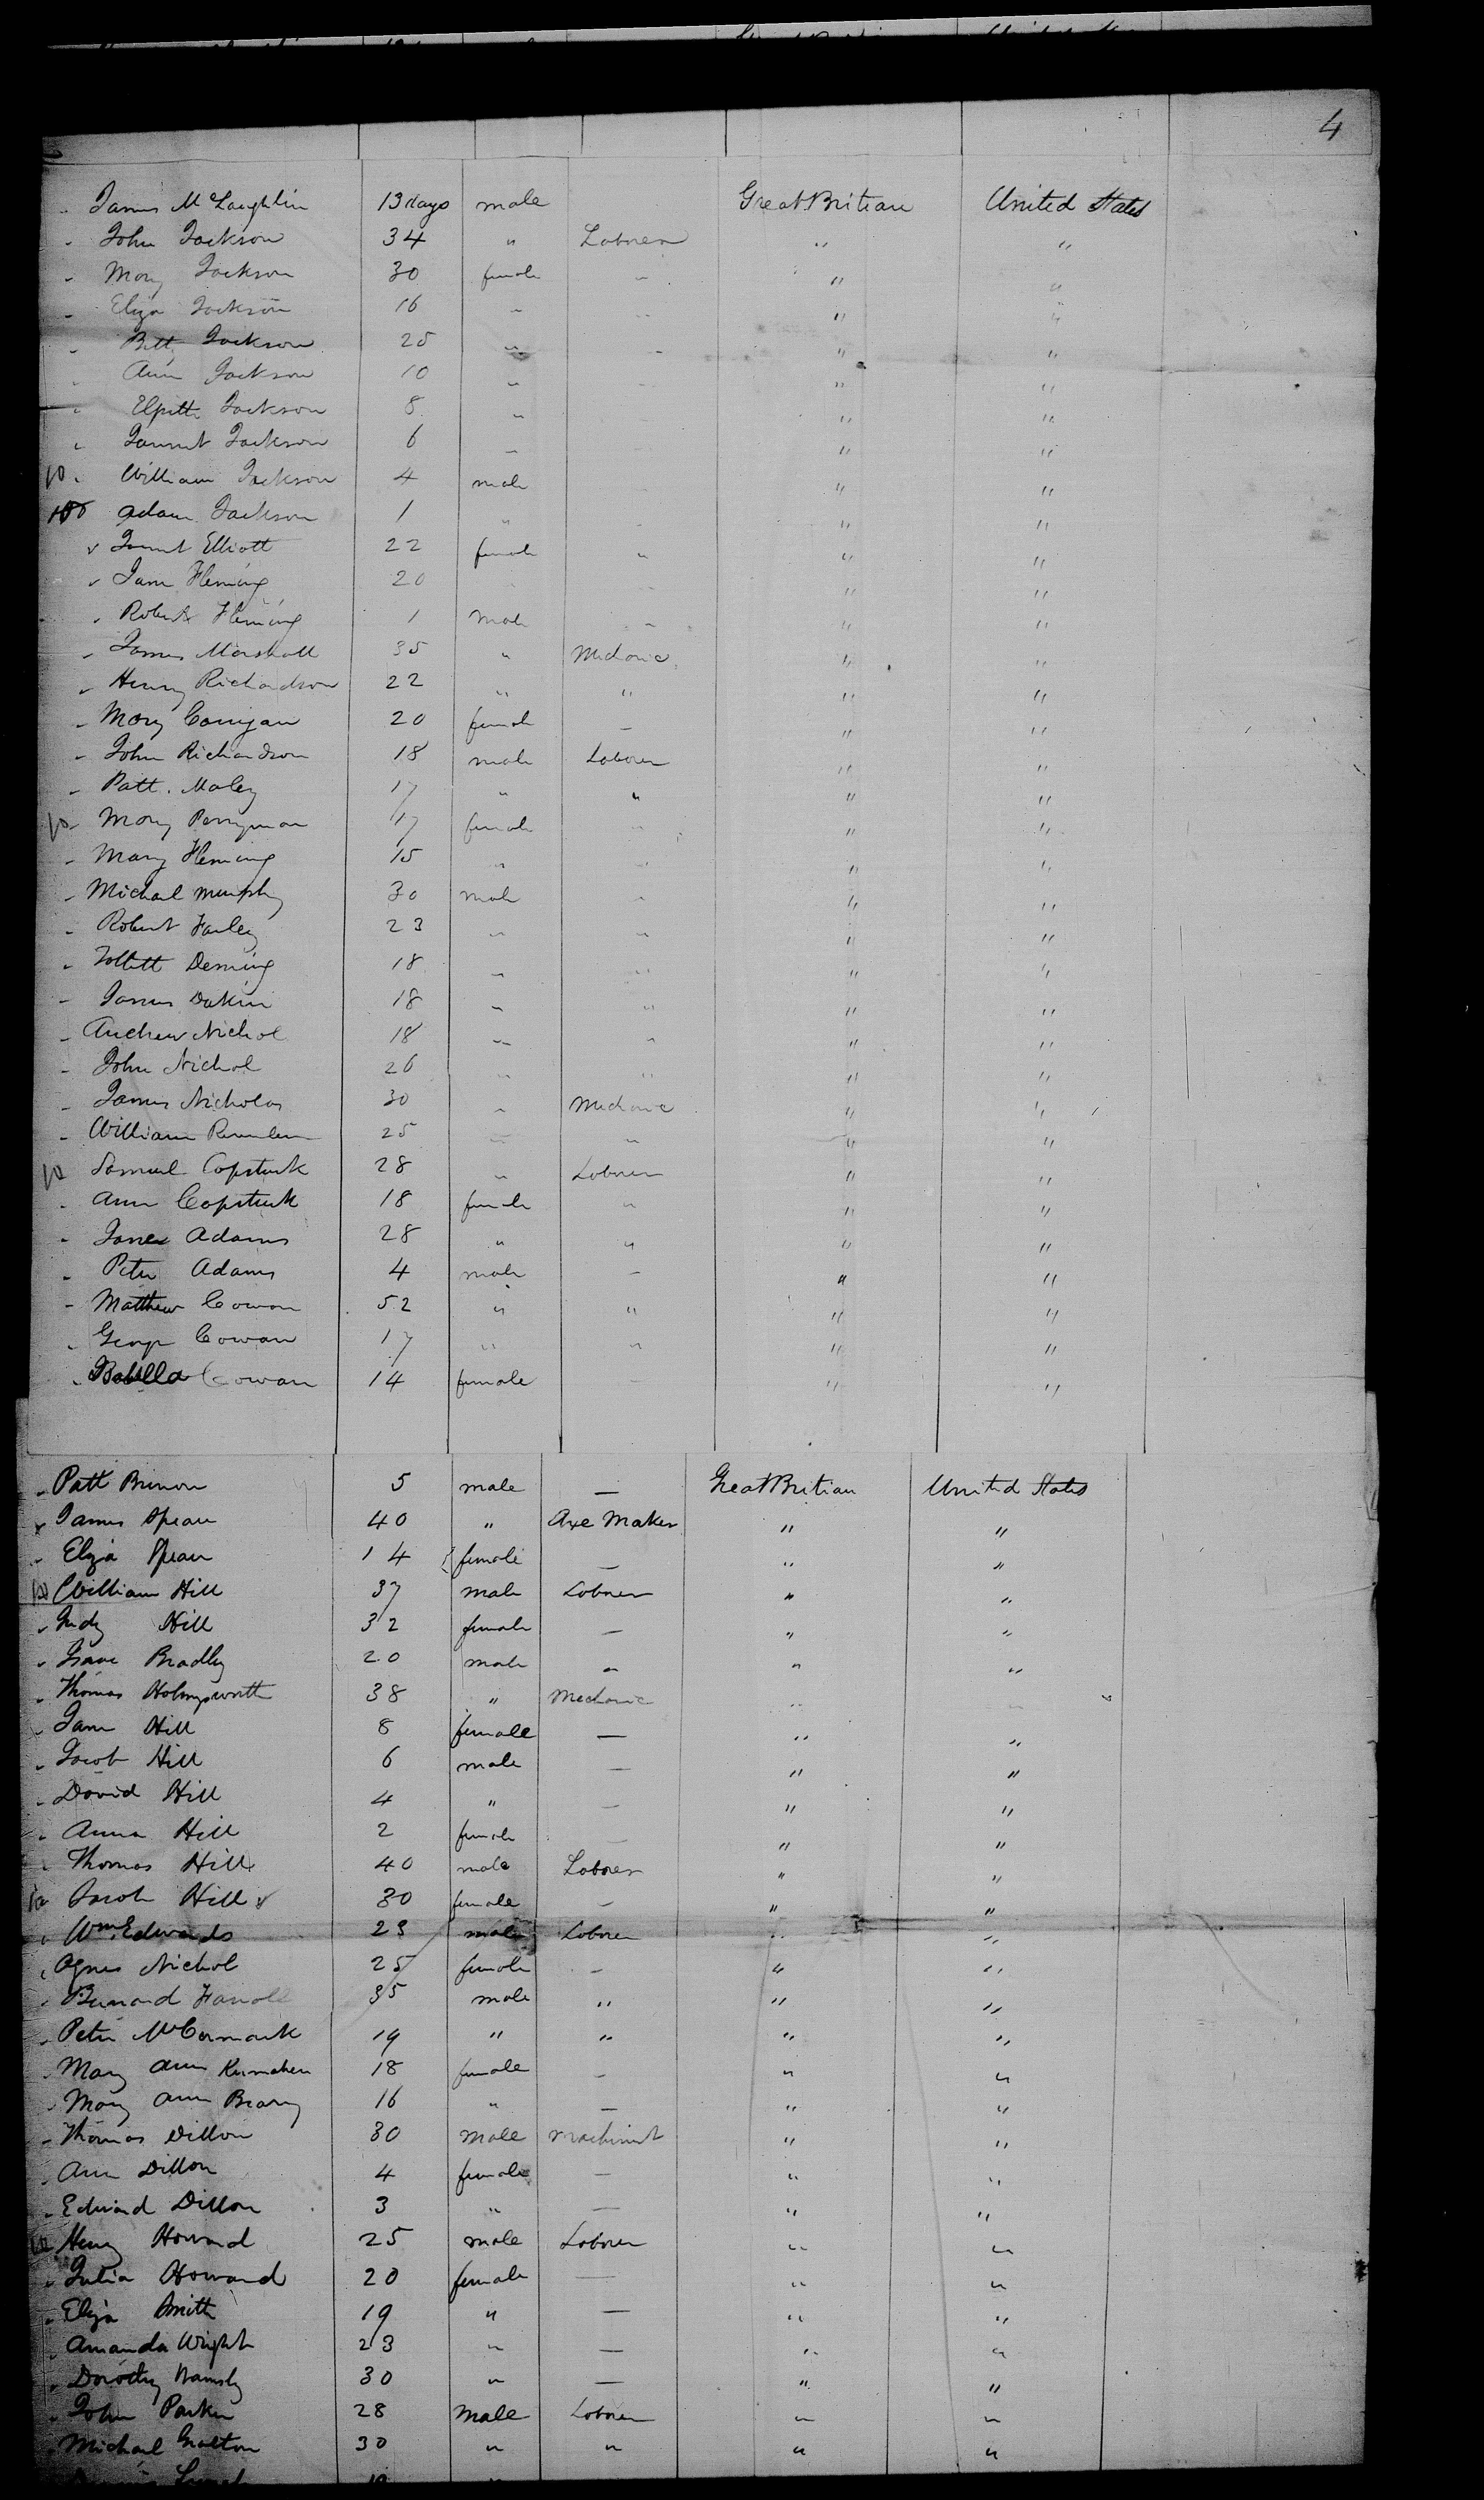 4
James McLaughlin 13 days male Great Britian United States
John Jackson 34 " Laborer " "
Mary Jackson 30 female - " "
Eliza Jackson 16 " - " "
Betty Jackson 20 " - " "
Ann Jackson 10 " - " "
Elpith Jackson 8 " " "
Jannet Jackson 6 " " "
10 William Jackson 4 male " "
Adam Jackson 1 " - " "
Jannet Elliott 22 female " " "
Jane Fleming 20 " " "
Robert Fleming 1 male - " "
James Marshall 35 " Mechanic " "
Henry Richardson 22 " " " "
Mary Corrigan 20 female - " "
John Richardson 18 male Laborer " "
Patt. Maley 17 " " " "
10 Mary Perryman 17 female - " "
Mary Fleming 15 " - " "
Michael Murphy 30 male " " "
Robert Farley 23 " " " "
Deming 18 " " " "
James Dakin 18 " " " "
Andrew Nichol 18 " " " "
John Nichol 26 " " " "
James Nicholas 30 " Mechanic " "
William 25 " " " "
10 Samuel Copstick 28 " Laborer " "
Ann Copstick 18 female " " "
Jane Adams 28 " " " "
Peter Adams 4 male - " "
Matthew Cowan 52 " " " "
George Cowan 17 " " " "
Isabella Cowan 14 female - " "
Patt Brinon 5 male - Great Britian United States
James Spear 40 " Axe Maker " "
Eliza Spear 14 female - " "
10 William Hill 37 male Laborer " "
Judy Hill 32 female - " "
Isaac Bradley 20 male " " "
Thomas Holmgsworth 38 " Mechanic " "
Jane Hill 8 female - " "
Jacob Hill 6 male - " "
David Hill 4 " - " "
Anna Hill 2 female - " "
Thomas Hill 40 male Laborer " "
10 Sarah Hill 30 female - " "
Wm. Edwards 23 male Laborer " "
Agnes Nichol 25 female - " "
Bernard Farrell 35 male " " "
Peter McCormack 19 " " " "
Mary Ann 18 female - " "
Mary Ann 16 " - " "
Thomas Dillon 30 male Machinist " "
Ann Dillon 4 female - " "
Edward Dillon 3 " - " "
10 Henry Howard 25 male Laborer " "
Julia Howard 20 female - " "
Eliza Smith 19 " - " "
Amanda Wright 23 " - " "
Dorothy 30 " - " "
John Parker 28 Male Laborer " "
Michael Gralton 30 " " " "